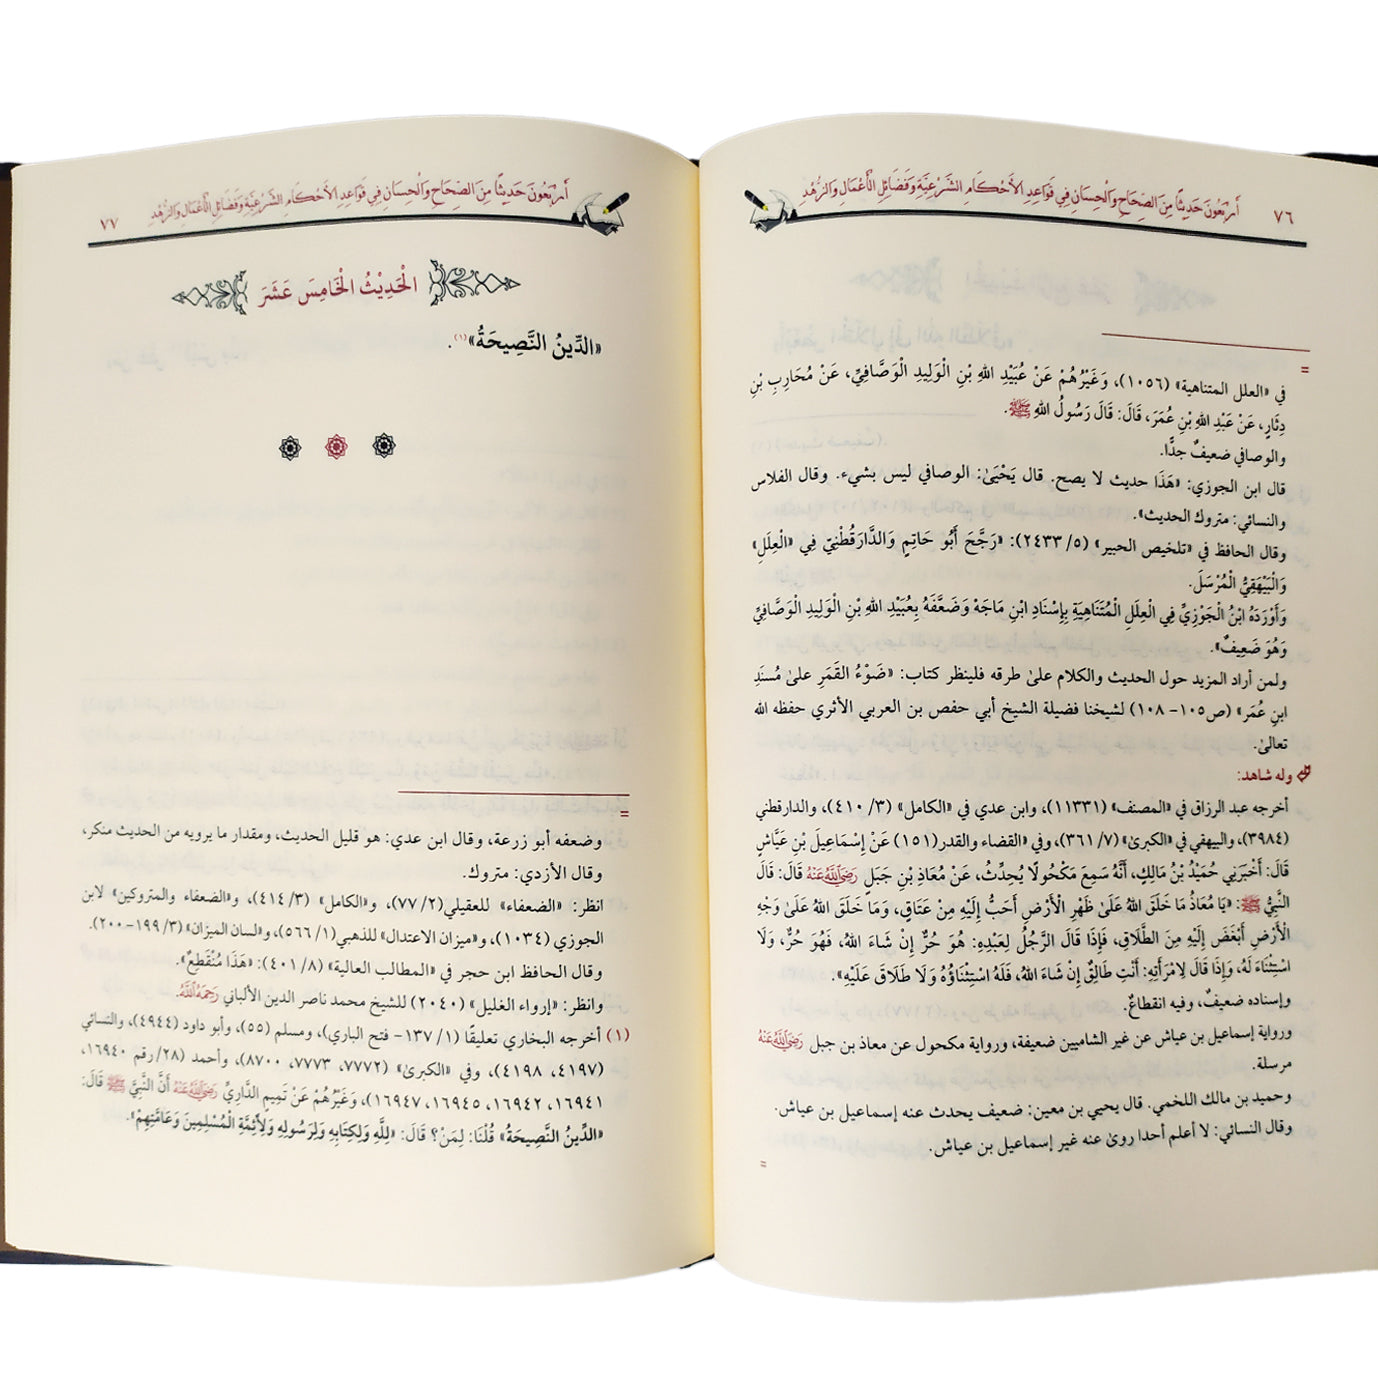 ٧٦ أَرْبَعُونَ حَدِيثًا مِنَ الصِّحَاحِ وَالْحِسَانِ فِي قَوَاعِدِ الأَحْكَامِ الشَّرْعِيَّةِ وَفَضَائِلِ الأَعْمَالِ وَالزُّهْدِ
=
في «العلل المتناهية» (١٠٥٦)، وَغَيْرُهُمْ عَنْ عُبَيْدِ اللهِ بْنِ الْوَلِيدِ الْوَصَّافِيِّ، عَنْ مُحَارِبِ بْنِ
دِثَارٍ، عَنْ عَبْدِ اللهِ بْنِ عُمَرَ، قَالَ: قَالَ رَسُولُ اللهِ ﷺ.
والوصافي ضعيفٌ جدًّا.
قال ابن الجوزي: «هَذَا حديث لا يصح. قال يَحْيَىٰ: الوصافي ليس بشيء. وقال الفلاس
والنسائي: متروك الحديث».
وقال الحافظ في «تلخيص الحبير» (٥/ ٢٤٣٣): «رَجَّحَ أَبُو حَاتِمٍ وَالدَّارَقُطْنِيّ فِي «الْعِلَلِ»
وَالْبَيْهَقِيُّ الْمُرْسَلَ.
وَأَوْرَدَهُ ابْنُ الْجَوْزِيِّ فِي الْعِلَلِ الْمُتَنَاهِيَةِ بِإِسْنَادِ ابْنِ مَاجَهْ وَضَعَّفَهُ بِعُبَيْدِ اللهِ بْنِ الْوَلِيدِ الْوَصَّافِيِّ
وَهُوَ ضَعِيفٌ».
ولمن أراد المزيد حول الحديث والكلام علىٰ طرقه فلينظر كتاب: «ضَوْءُ القَمَرِ علىٰ مُسنَدِ
ابنِ عُمَر» (ص١٠٥- ١٠٨) لشيخنا فضيلة الشيخ أبي حفص بن العربي الأثري حفظه الله
تعالىٰ.
وله شاهد:
أخرجه عبد الرزاق في «المصنف» (١١٣٣١)، وابن عدي في «الكامل» (٣/ ٤١٠)، والدارقطني
(٣٩٨٤)، والبيهقي في «الكبرىٰ» (٧/ ٣٦١)، وفي «القضاء والقدر(١٥١) عَنْ إِسْمَاعِيلَ بْنِ عَيَّاشٍ
قَالَ: أَخْبَرَنِي حُمَيْدُ بْنُ مَالِكٍ، أَنَّهُ سَمِعَ مَكْحُولًا يُحَدِّثُ، عَنْ مُعَاذِ بْنِ جَبَلٍ رَضِيَ اللَّهُ عَنْهُ قَالَ: قَالَ
النَّبِيُّ ﷺ: «يَا مُعَاذُ مَا خَلَقَ اللهُ عَلَىٰ ظَهْرِ الْأَرْضِ أَحَبُّ إِلَيْهِ مِنْ عَتَاقٍ، وَمَا خَلَقَ اللهُ عَلَىٰ وَجْهِ
الْأَرْضِ أَبْغَضَ إِلَيْهِ مِنَ الطَّلَاقِ، فَإِذَا قَالَ الرَّجُلُ لِعَبْدِهِ: هُوَ حُرٌّ إِنْ شَاءَ اللهُ، فَهُوَ حُرٌّ، وَلَا
اسْتِثْنَاءَ لَهُ، وَإِذَا قَالَ لِامْرَأَتِهِ: أَنْتِ طَالِقٌ إِنْ شَاءَ اللهُ، فَلَهُ اسْتِثْنَاؤُهُ وَلَا طَلَاقَ عَلَيْهِ».
وإسناده ضعيفٌ، وفيه انقطاعٌ.
ورواية إسماعيل بن عياش عن غير الشاميين ضعيفة، ورواية مكحول عن معاذ بن جبل رَضِيَ اللَّهُ عَنْهُ
مرسلة.
وحميد بن مالك اللخمي. قال يحيي بن معين: ضعيف يحدث عنه إسماعيل بن عياش.
وقال النسائي: لا أعلم أحدا روىٰ عنه غير إسماعيل بن عياش.
=
أَرْبَعُونَ حَدِيثًا مِنَ الصِّحَاحِ وَالْحِسَانِ فِي قَوَاعِدِ الأَحْكَامِ الشَّرْعِيَّةِ وَفَضَائِلِ الأَعْمَالِ وَالزُّهْدِ ٧٧
الْحَدِيْثُ الْخَامِسَ عَشَرَ
«الدِّينُ النَّصِيحَةُ»(١).
=
وضعفه أبو زرعة، وقال ابن عدي: هو قليل الحديث، ومقدار ما يرويه من الحديث منكر،
وقال الأزدي: متروك.
انظر: «الضعفاء» للعقيلي(٢/ ٧٧)، و«الكامل» (٣/ ٤١٤)، و«الضعفاء والمتروكين» لابن
الجوزي (١٠٣٤)، و«ميزان الاعتدال» للذهبي(١/ ٥٦٦)، و«لسان الميزان»(٣/ ١٩٩-٢٠٠).
وقال الحافظ ابن حجر في «المطالب العالية» (٨/ ٤٠١): «هَذَا مُنْقَطِعٌ».
وانظر: «إرواء الغليل» (٢٠٤٠) للشيخ محمد ناصر الدين الألباني رَحِمَهُ اللَّهُ.
(١) أخرجه البخاري تعليقًا (١/ ١٣٧- فتح الباري)، ومسلم (٥٥)، وأبو داود (٤٩٤٤)، والنسائي
(٤١٩٧، ٤١٩٨)، وفي «الكبرىٰ» (٧٧٧٢، ٧٧٧٣، ٨٧٠٠)، وأحمد (٢٨/ رقم ١٦٩٤٠،
١٦٩٤١، ١٦٩٤٢، ١٦٩٤٥، ١٦٩٤٧)، وَغَيْرُهُمْ عَنْ تَمِيمٍ الدَّارِيِّ رَضِيَ اللَّهُ عَنْهُ أَنَّ النَّبِيَّ ﷺ قَالَ:
«الدِّينُ النَّصِيحَةُ» قُلْنَا: لِمَنْ؟ قَالَ: «لِلَّهِ وَلِكِتَابِهِ وَلِرَسُولِهِ وَلِأَئِمَّةِ الْمُسْلِمِينَ وَعَامَّتِهِمْ».